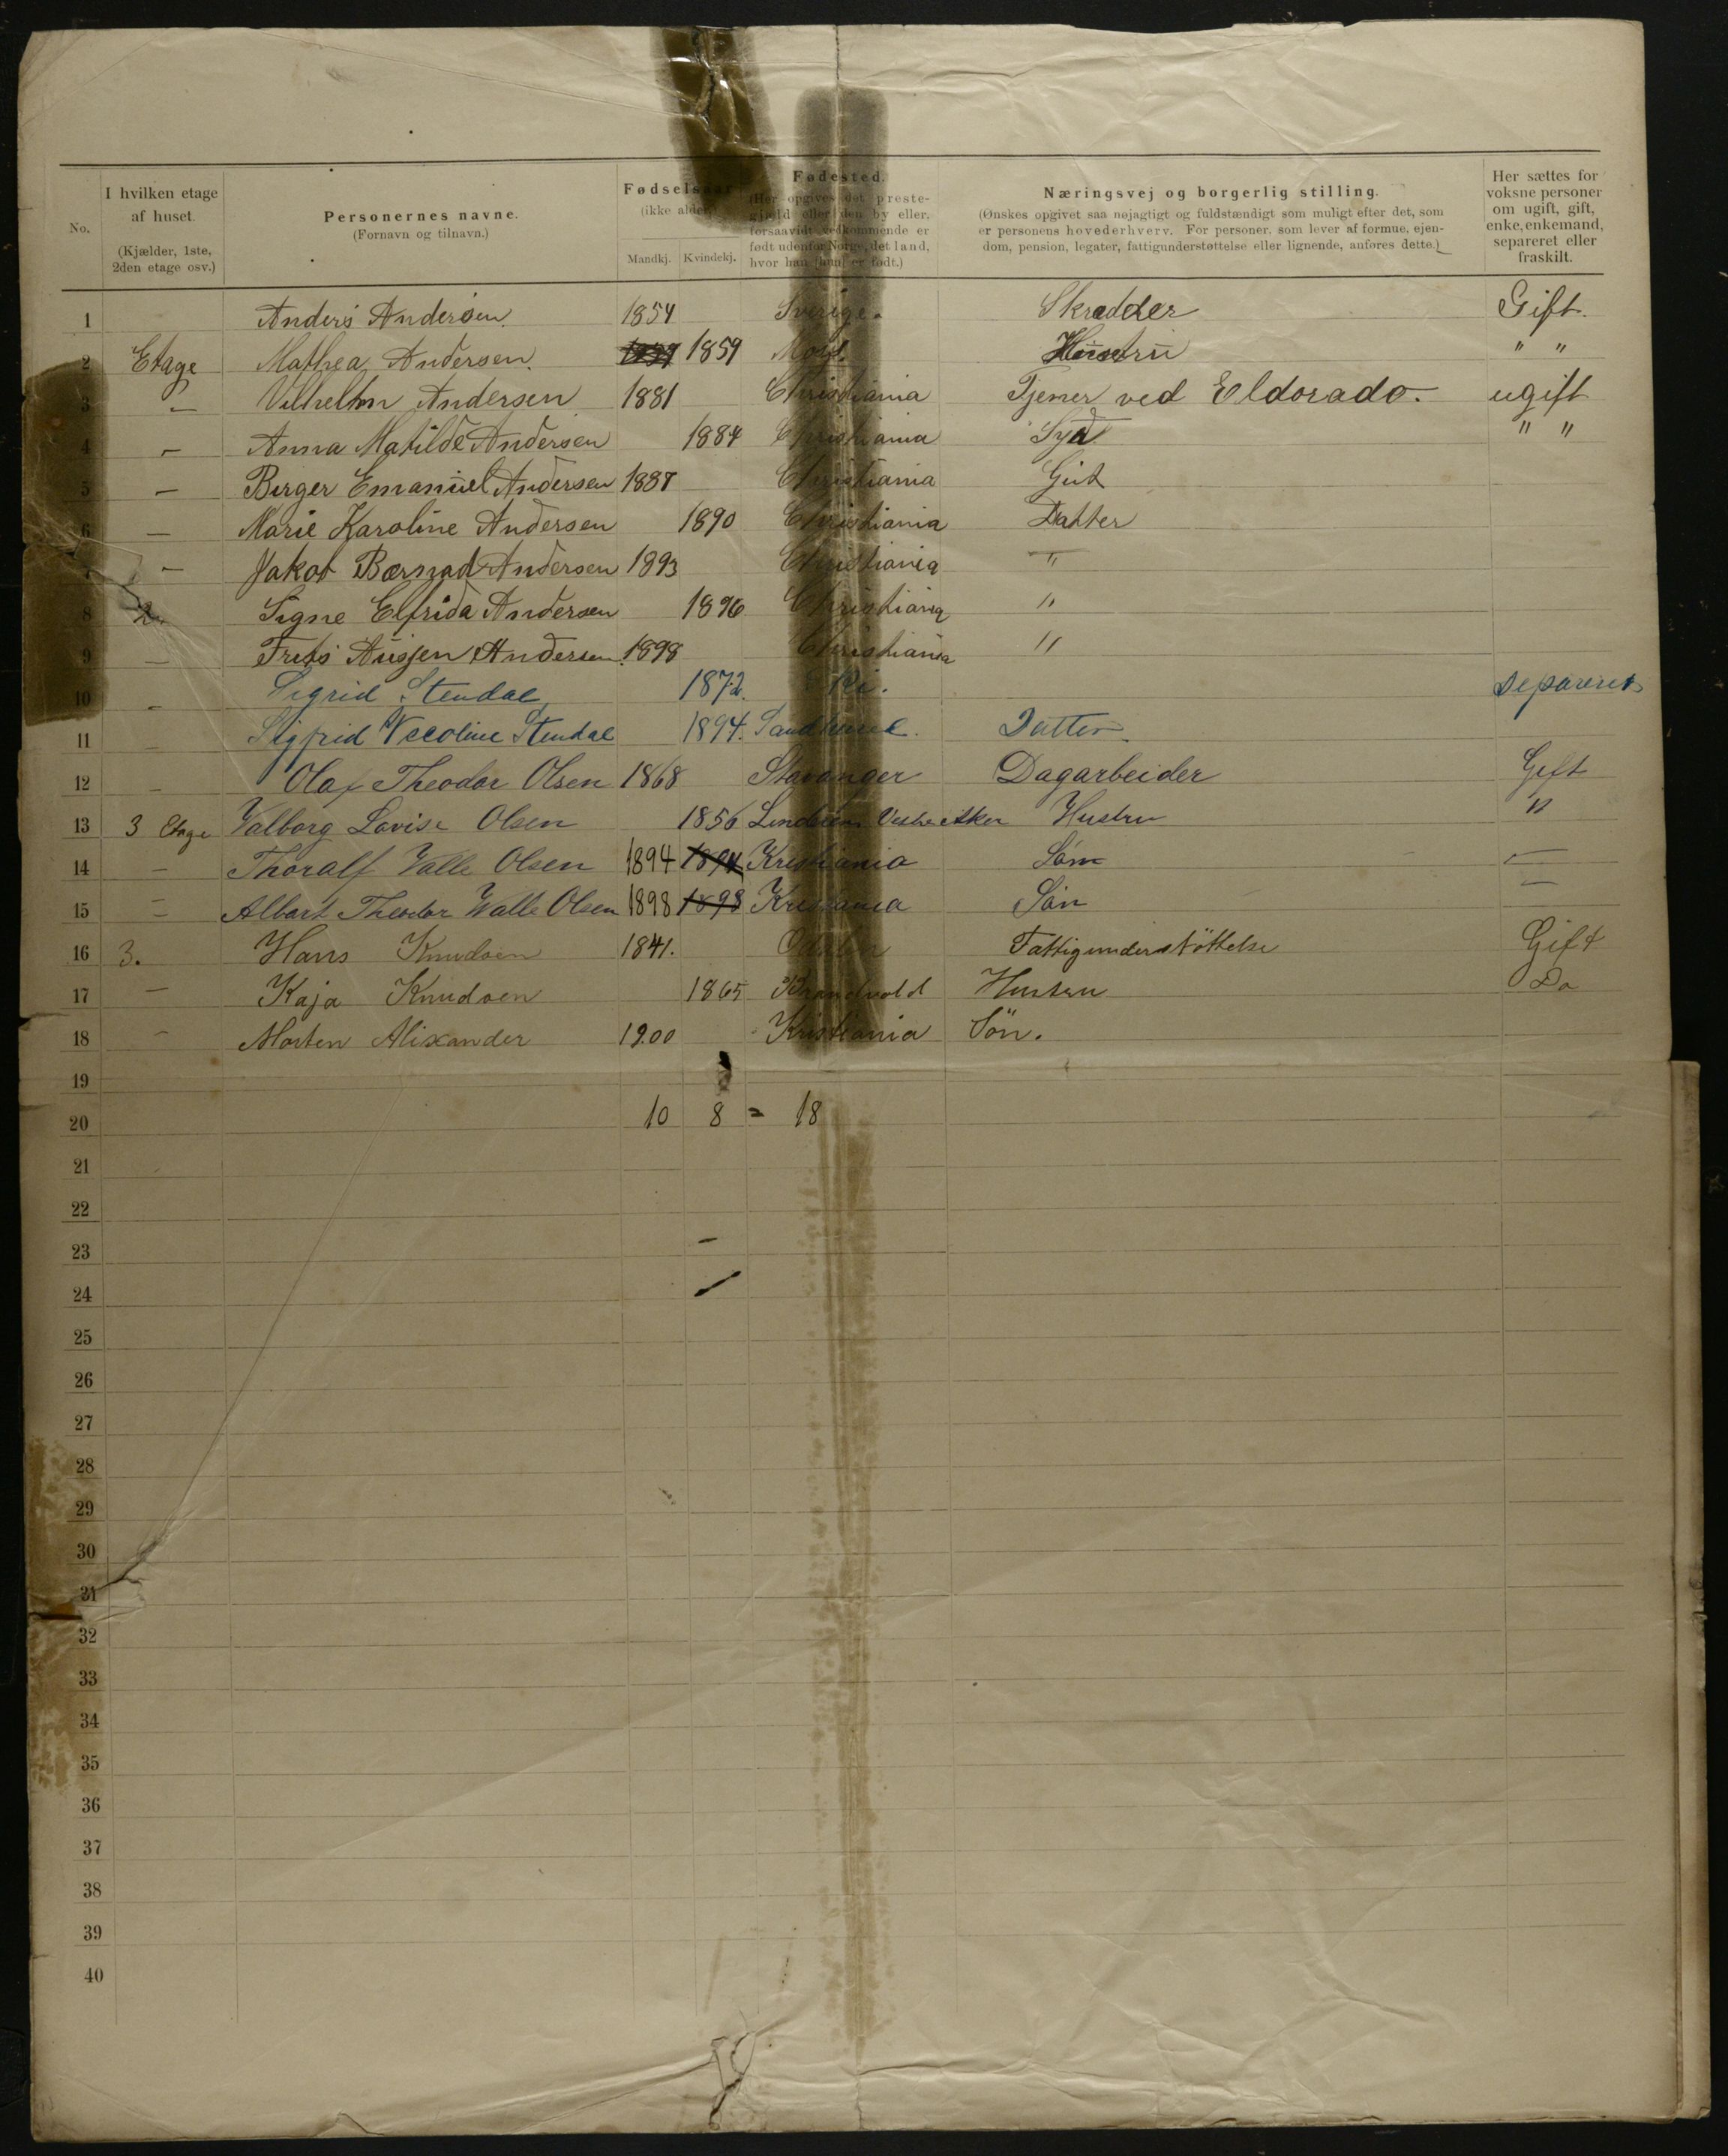 No.
I hvilken etage af huset. (Kjælder, 1ste, 2den etage osv.)
Personernes navne. (Fornavn og tilnavn.)
Fødselsaar (ikke alder). Mandkj. Kvindekj.
Fødested. (Her opgives det prestegjæld eller den by eller, forsaavidt vedkommende er født udenfor Norge, det land, hvor han (hun) er født.)
Næringsvej og borgerlig stilling. (Ønskes opgivet saa nøjagtigt og fuldstændigt som muligt efter det, som er personens hovederhverv. For personer, som lever af formue, ejendom, pension, legater, fattigunderstøttelse eller lignende, anføres dette.)
Her sættes for voksne personer om ugift, gift, enke, enkemand, separeret eller fraskilt.
1 Anders Andersen. 1854 Sverige. Skrædder Gift.
2 Etage Mathea Andersen. 1859 Hüstrü " "
3 – Vilhelhm Andersen 1881 Christiania Tjener ved Eldorado. ugift
4 – Anna Matilde Andersen 1884 Christiania " "
5 – Birger Emanüel Andersen 1887 Christiania Güt
6 – Marie Karoline Andersen 1890 Christiania Datter
7 – Jakob Bærnad Andersen 1893 Christiania "
8 2. Signe Elfrida Andersen 1896 Christiania "
9 – Andersen. 1898 Christiania "
10 – Sigrid Stendal 1872. Separeret
11 – Sigfrid Stendal 1894. Datter.
12 – Olaf Theodor Olsen 1868 Stavanger Dagarbeider Gift
13 3 Etage Valborg Lovise Olsen 1856 Vestre Aker Hustru "
14 – Thoralf Valle Olsen 1894 1894 Kristiania Søn –
15 – Albart Theodor Walle Olsen 1898 1898 Kristiania Søn –
16 3. Hans Knudsen 1841. Odalen Fattigunderstöttelse Gift
17 – Kaja Knudsen 1865 Brandvold Hustru Do
18 – Morten Alixander 1900 Kristiania Sön.
19
20 10 8 = 18
21
22
23 –
24
25
26
27
28
29
30
31
32
33
34
35
36
37
38
39
40